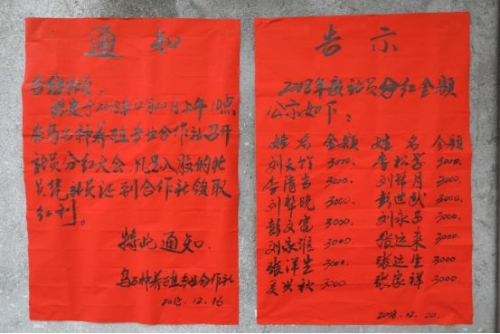 通知
各位社员：
定于2018年12月20日上午10点
在乌石种养殖专业合作社召开
社员分红大会，凡是入股的社
员，社员达到合作社领取
红利。
特此通知
乌石种养殖专业合作社
2018.12.16
告示
2018年社员分红金额
公示如下：
姓名 金额 姓名 金额
刘 竹 3000. 李松子 3000.
李清吉 3000. 刘祥月 3000.
刘 晚 3000. 彭 3000.
彭文富 3000. 刘永 3000.
刘 3000 张运来 3000.
张洋生 3000 张运生 3000
吴兴秋 3000. 张家祥 3000
2018.12.20.